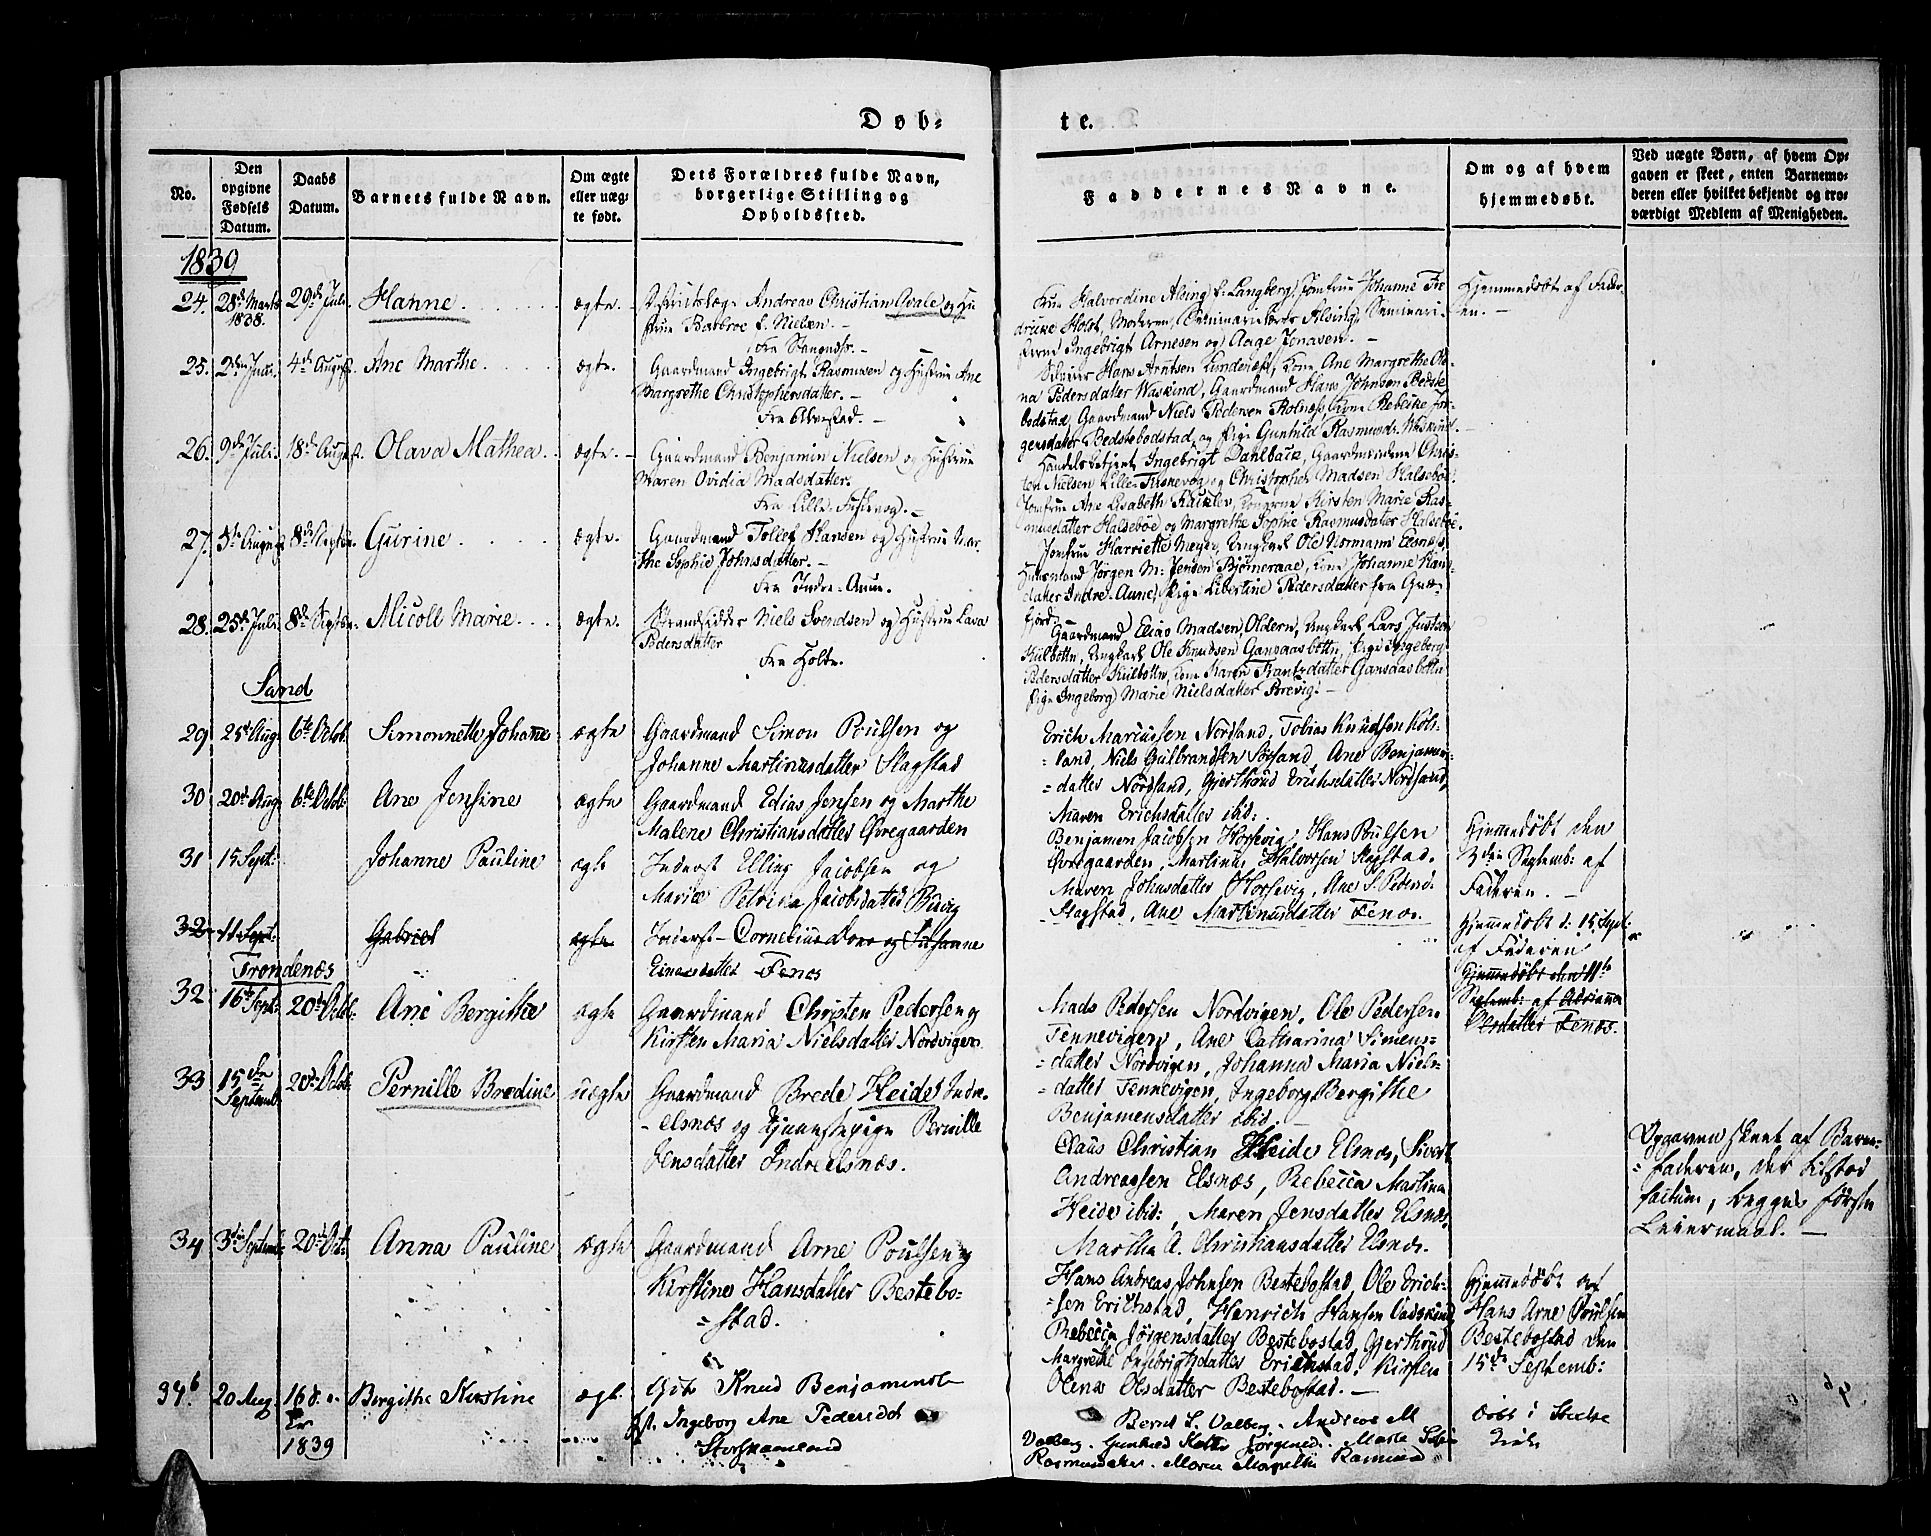 Døb-
te.
No.
Den opgivne Fødsels Datum.
Daabs Datum.
Barnets fulde Navn.
Om ægte eller uægte født.
Dets Forældres fulde Navn, borgerlige Stilling og Opholdssted.
Faddernes Navne.
Om og af hvem hjemmedøbt.
Ved uægte Børn, af hvem Opgaven er skeet, enten Barnemoderen eller hvilket bekjendt og troværdigt Medlem af Menigheden.
1839
24. 28de Marts 1838. 29de Juli Hanne. ægte.
Andreas Christian Qvale og Hu
stru Barbroe f. Nielsen. -
Fra Stangnæs. -
Fru Halvordine Alsing f. Langberg, Jomfru Johanne Fre
drikke Holst, Moderen, Seminarielærer Alsing, Seminari
sterne Ingebrigt Arnesen og Aage Jonasen. -
Hjemmedøbt af Fader-
en. -
25. 2den Juli 4de August Ane Marthe. ægte.
Gaardmand Ingebrigt Rasmusen og Hustrue Ane
Margrethe Christophersdatter. -
Hans Arntsen Kone Ane Margrethe Ole
na Pedersdatter Waskind, Gaardmand Hans Johnsen Bedste
bodstad, Gaardmand Niels Pedersen Rolnæs, Kone Rebekke Jør-
gensdatter Bedstebodstad, og Pige Gunhild Rasmusd. Waskind.
26. 9de Juli 18de August. Olava Mathea. ægte. -
Gaardmand Benjamin Nielsen og Hustrue
Maren Ovidia Madsdatter.
Fra Lille-
Handelsbetjent Ingebrigt Dahlback, Gaardmændene Chris-
ten Nielsen Lille- og Christopher Madsen Halseböe
Jomfrue Ane Lisabeth Konerne Kirsten Marie Ras-
musdatter Halseböe og Margrethe Sophie Rasmusdatter Halseböe.
27. 5te August 8de Septbr. Gurine. ægte.
Gaardmand Tollef Hansen og Hustrue Mar-
the Sophie Johnsdatter. -
Fra Indre-Aune.
Jomfrue Harriette Meyer, Ungkarl Ole Normann Elsnæs,
Huusmand Jørgen M: Jensen Bjørneraae, Kone Johanne Hans
datter Indre-Aune, Pige Libertine Pedersdatter fra Gul-
fjord
28. 25de Juli 8de Septbr. Nicoll Marie. ægte.
Strandsidder Niels Svendsen og Hustrue Lava
Pedersdatter
Fra Holte.
Gaardmand Elias Madsen Oldern, Ungkarl Lars Justsen
Kulbotn, Ungkarl Ole Knudsen Gansaasbotn, Pige Ingeborg
Pedersdatter Kulbotn, Kone Karen Frantzdatter Gansaasbotn
Pige Ingeborg Marie Nielsdatter
Sand
29 25d Aug 6te Octob. Simonnette Johanne ægte
Gaardmand Simon Poulsen og
Johanne Martinusdatter Slagstad
Erich Mariussen Nordsand, Tobias Knudsen Kols-
land, Niels Gulbrandsen Sørsand, Ane Benjamins-
datter Nordsand, Gjerthrud Erichsdatter Nordsand,
Maren Erichsdatter ibid:
30 20d Aug 6te Octob: Ane Jensine ægte
Gaardmand Edias Jensen og Marthe
Malene Christiansdatter Øvregaarden
Benjamin Jacobsen Horsevig, Hans Poulsen
Øvregaarden, Martinus Halvorsen Slagstad.
Maren Johnsdatter Horsevig, Ane S. Peders d:
Slagstad, Ane Martinusdatter Fenes.
Hjemmedöbt den
3den Septemb: af
Faderen. -
31 15 Sept: Johanne Pauline ægte
Inderst Elling Jacobsen og
Marie Petrina Jacobsdatter
Hjemmedöbt d: 15. Sept:
af Faderen
32 11 Sept: Gabriel ægte
Inderst - Cornelius og Susanne
Einersdatter Fenes
Hjemmedöbt den 11te
Septemb: af Adrianna
Olsdatter Fenes.
Trondenæs
32 16de Sept: 20de Octob: Ane Bergitha ægte
Gaardmand Christen Pedersen og
Kirsten Maria Nielsdatter Nordvigen
Mads Pedersen Nordvigen, Ole Pedersen
Tennevigen, Ane Catharina Simens-
datter Nordvigen, Johanna Maria Niels-
datter Tennevigen, Ingeborg Bergithe
Benjamensdatter ibid. -
33 15de Septemb 20de Octob Pernille Bredine uægte
Gaardmand Brede Heide Indr.
elsnæs og Tjenestepige Pernille
Jensdatter Indreelsnæs.
Claus Christian Heide Elsnæs, Sivert
Andreassen Elsnæs, Rebecca Martina
Heide ibid:, Maren Jensdatter Elsnæs,
Martha A. Christiansdatter Elsnæs.
Opgaven skeet af Barne-
faderen, det tilstod
factum, begges første
Leiermaal. -
34 3die Septemb: 20de Oct: Anna Pauline ægte
Gaardmand Arne Poulsen og
Kirstine Hansdatter Bestebo-
stad.
Hans Andreas Johnsen Bestebostad, Ole Erich-
sen Erichstad, Henrich Hansen Vadskind
Rebecca Jörgensdatter Bestebostad, Gjerthrud
Margrethe Ingebrigtsdatter Erichstad, Kirsten
Olena Olsdatter Bestebostad. -
Hjemmedöbt af
Hans Arne Poulsen
Bestebostad den
15de Septemb:
34b 20 Aug. 1839 Bergithe Kirstine ægte
Knud Benjaminsen
Ingeborg Ane Pedersdot
Bernt S. Valberg. Andreas M
Valberg. Jörgensd.. Marte
Rasmusdatter. Maren Margrethe Rasmusd
Döbt i